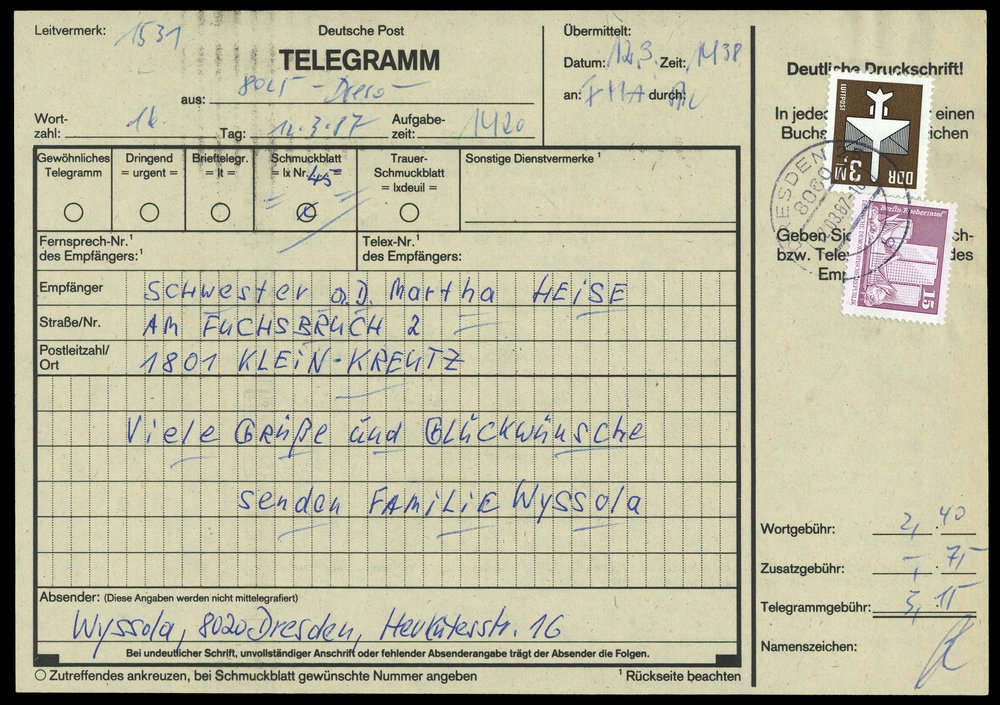 Leitvermerk: 1531
Deutsche Post
TELEGRAMM
aus:
Wort-
zahl: 16 Tag: 12.3.87 Aufgabe-
zeit: 1420
Übermittelt:
Datum: 12.3. Zeit: 1438
an: durch:
Deutliche Druckschrift!
In jedes einen
Buchs ichen
Geben Si ch-
bzw. Tele des
Emp
LUFTPOST
DDR 3,- M
15
Gewöhnliches
Telegramm
Dringend
= urgent =
Brieftelegr.
= lt =
Schmuckblatt
= lx Nr. 45 =
Trauer-
Schmuckblatt
= lxdeuil =
Sonstige Dienstvermerke ¹
Fernsprech-Nr.¹
des Empfängers:¹
Telex-Nr.¹
des Empfängers:
Empfänger Schwester a.D. Martha HEISE
Straße/Nr. AM FUCHSBRUCH 2
Postleitzahl/
Ort 1801 KLEIN-KREUTZ
Viele Grüße und Glückwünsche
senden FAMILIE Wyssola
Absender: (Diese Angaben werden nicht mittelegrafiert)
Wyssola, 8020 Dresden, Herkulesstr. 16
Bei undeutlicher Schrift, unvollständiger Anschrift oder fehlender Absenderangabe trägt der Absender die Folgen.
Zutreffendes ankreuzen, bei Schmuckblatt gewünschte Nummer angeben
¹ Rückseite beachten
Wortgebühr: 2,40
Zusatzgebühr: -,75
Telegrammgebühr: 3,15
Namenszeichen: